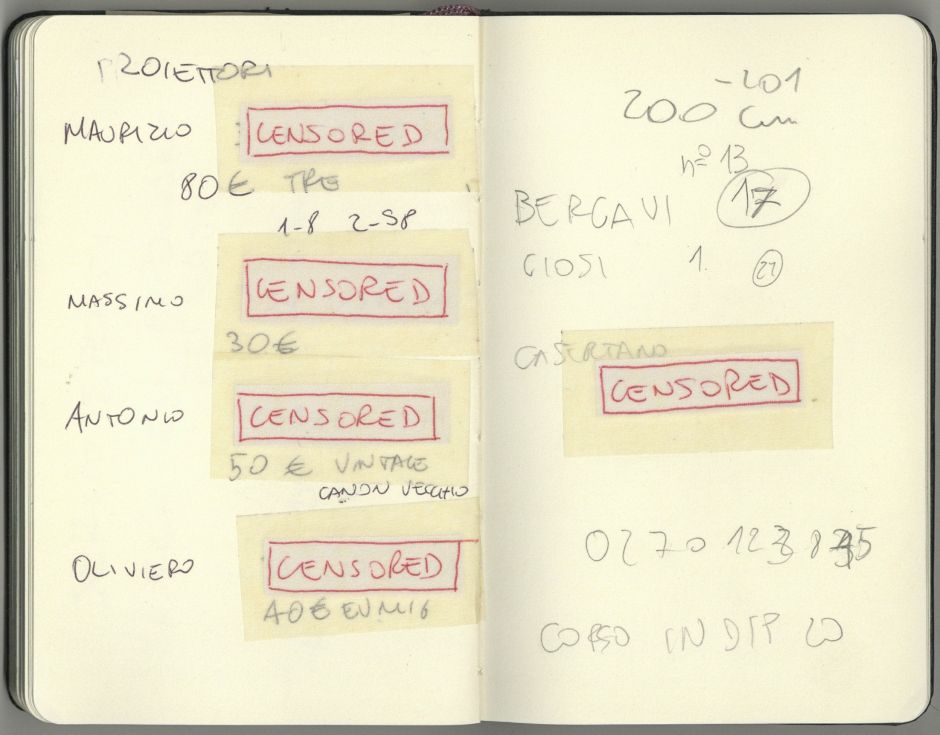 PROIETTORI
MAURIZIO CENSORED
80 € TRE
1-8 2-S8
MASSIMO CENSORED
30 €
ANTONIO CENSORED
50 € VINTAGE
CANON VECCHIO
OLIVIERO CENSORED
40 € EUMIG
-201
200 cm
nº 13
17
GIOSI 1. 21
CASERTANO
CENSORED
CORSO